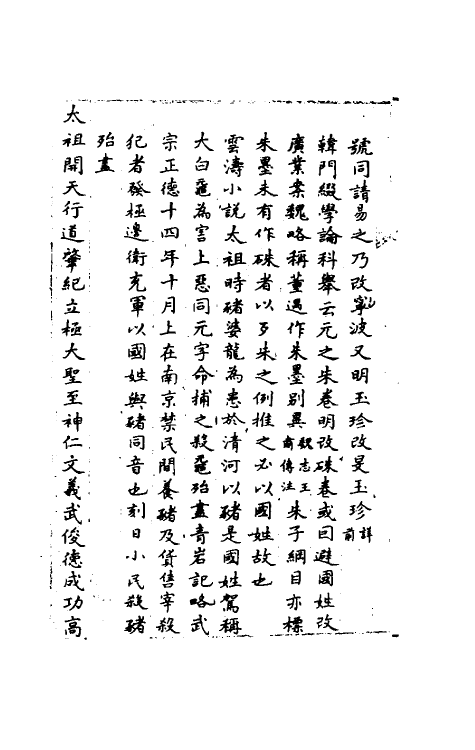 號同請易之乃改寧波又明玉珍改旻玉珍詳前
韓門綴學論科舉云元之朱卷明改硃卷或曰避國姓改
廣業案魏略稱董遇作朱墨別異魏志王肅傳注朱子綱目亦標
朱墨未有作硃者以歹朱之例推之必以國姓故也
雲濤小說太祖時豬婆龍為患於清河以豬是國姓駕稱
大白黿為害上惡同元字命捕之殺黿殆盡音岩記略武
宗正德十四年十月上在南京禁民間養豬及貨售宰殺
犯者發極邊衛充軍以國姓與豬同音也刻日小民殺豬
殆盡
太祖開天行道肇紀立極大聖至神仁文義武俊德成功高